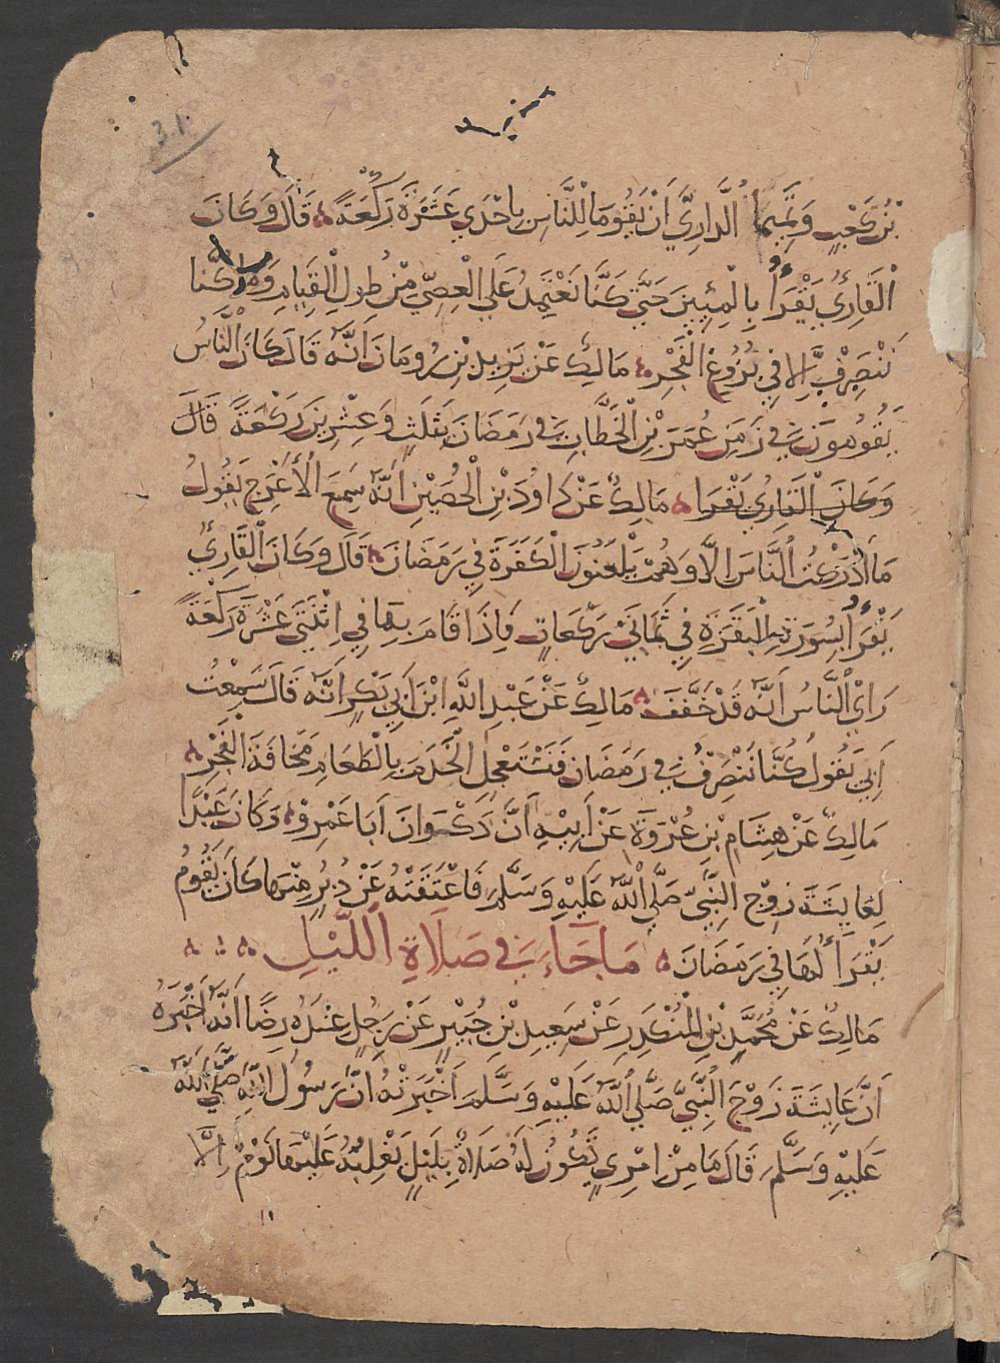 بْنُ كَعْبٍ وَتَمِيمًا الدَّارِيَّ أَنْ يَقُومَا لِلنَّاسِ بِإِحْدَي عَشَرَةَ رَكْعَةً قَالَ وَكَانَ
الْقَارِئُ يَقْرَأُ بِالْمِئِينَ حَتَّي كُنَّا نَعْتَمِدُ عَلَي الْعِصِيِّ مِنْ طُولِ الْقِيَامِ وَمَا كُنَّا
نَنْصَرِفُ إِلَّا فِي بُزُوغِ الْفَجْرِ مَالِكٌ عَنْ يَزِيدَ بْنِ رُومَانَ أَنَّهُ قَالَ كَانَ النَّاسُ
يَقُومُونَ فِي زَمَنِ عُمَرَ بْنِ الْخَطَّابِ فِي رَمَضَانَ بِثَلَثٍ وَعِشْرِينَ رَكْعَةً قَالَ
وَكَانَ الْقَارِئُ يَقْرَا مَالِكٌ عَنْ دَاوُدَ بْنِ الْحُصَيْنِ أَنَّهُ سَمِعَ الْأَعْرَجَ يَقُولُ
مَا أَدْرَكْتُ النَّاسَ إِلَّا وَهُمْ يَلْعَنُونَ الْكَفَرَةَ فِي رَمَضَانَ قَالَ وَكَانَ الْقَارِئُ
يَقْرَأُ بِسُورَةِ الْبَقَرَةِ فِي ثَمَانِيَ رَكَعَاتٍ فَإِذَا قَامَ بِهَا فِي اثْنَتَيْ عَشْرَةَ رَكْعَةً
رَأَي النَّاسُ أَنَّهُ قَدْ خَفَّفَ مَالِكٌ عَنْ عَبْدِ اللَّهِ ابْنِ أَبِي بَكْرٍ أَنَّهُ قَالَ سَمِعْتُ
أَبِي يَقُولُ كُنَّا نَنْصَرِفُ فِي رَمَضَانَ فَنَسْتَعْجِلُ الْخَدَمَ بِالطَّعَامِ مَخَافَةَ الْفَجْرِ
مَالِكٌ عَنْ هِشَامِ بْنِ عُرْوَةَ عَنْ أَبِيْهِ أَنَّ ذَكْوَانَ أَبَا عَمْرٍو وَكَانَ عَبْدًا
لِعَايِشَةَ زَوْجِ النَّبِيِّ صَلَّي اللَّهُ عَلَيْهِ وَسَلَّمَ فَاعْتَقَتْهُ عَنْ دُبُرٍ مِنْهَا كَانَ يَقُومُ
يَقْرَأُ لَهَا فِي رَمَضَانَ مَا جَاءَ فِي صَلَاةِ اللَّيْلِ
مَالِكٌ عَنْ مُحَمَّدِ بْنِ الْمُنْكَدِرِ عَنْ سَعِيدِ بْنِ جُبَيْرٍ عَنْ رَجُلٍ عِنْدَهُ رِضًا أَنَّهُ أَخْبَرَهُ
أَنَّ عَايِشَةَ زَوْجَ النَّبِيِّ صَلَّي اللَّهُ عَلَيْهِ وَسَلَّمَ أَخْبَرَتْهُ أَنَّ رَسُولَ اللَّهِ صَلَّي اللَّهُ
عَلَيْهِ وَسَلَّمَ قَالَ مَا مِنْ امْرِئٍ تَكُونُ لَهُ صَلَاةٌ بِلَيْلٍ يَغْلِبُهُ عَلَيْهَا نَوْمٌ إِلَّا